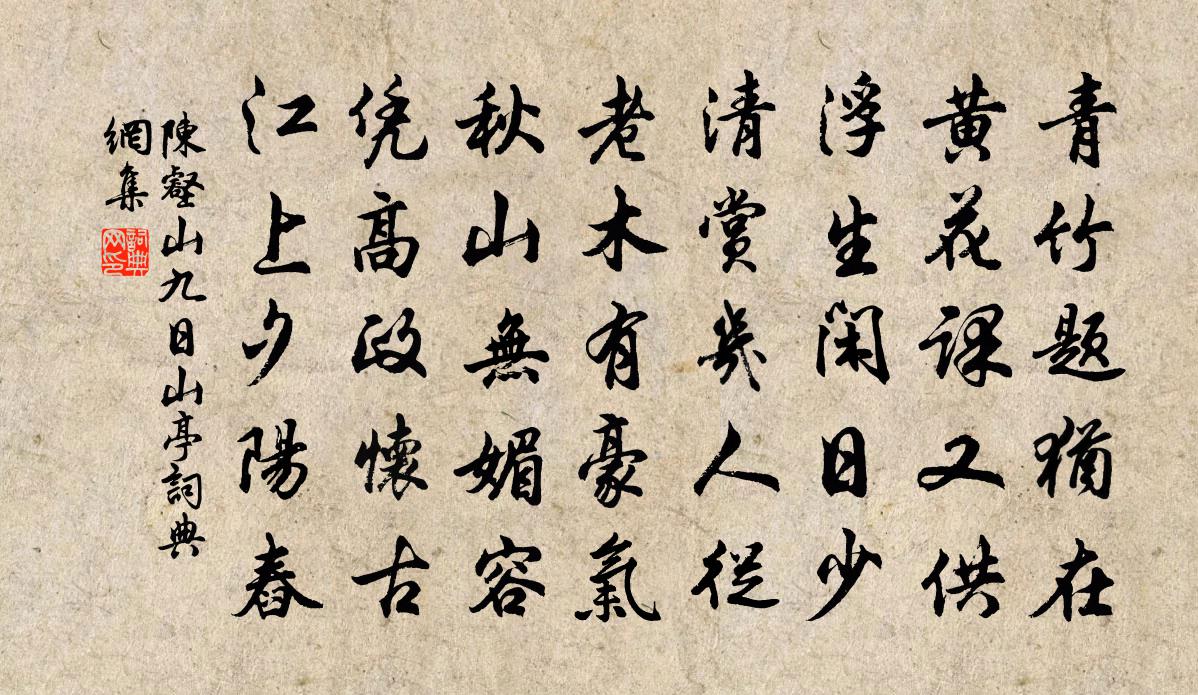 青竹題猶在
黃花課又供
浮生閑日少
清賞幾人從
老木有豪氣
秋山無媚容
凭高政懷古
江上夕陽舂
陳壑山九日山亭詞典
網集
詞典
网印